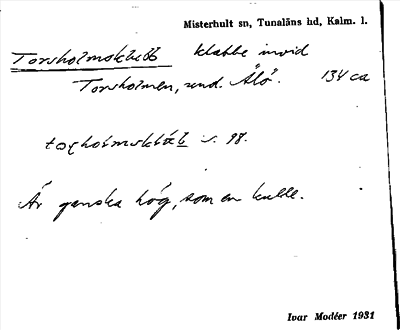 Misterhult sn, Tunaläns hd, Kalm. l.
Torsholmsklabb klabbe invid
Torsholmen, send. Älö. 134 ca
s. 98.
Är ganska hög, som en kulle.
Ivar Modéer 1931